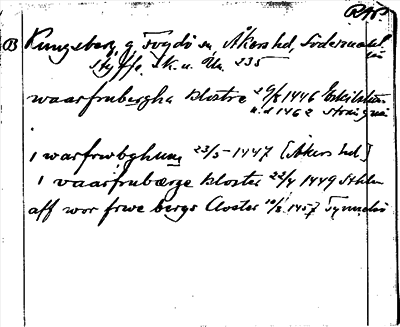 B Kungsberg, g Fogdö sn, Åkers hd, Södermanl
Styffe Sk. u. Un. 235
waarfrubergha klostre 29/8 1446 Eskilstuna
o. d 1462 Strängnä
i warfrwbghum 23/5-1447 [Åkers hd]
i vaarfrubærge kloster 22/4 1449 Sthlm
aff wor frwe bergs Closter 10/8 1457